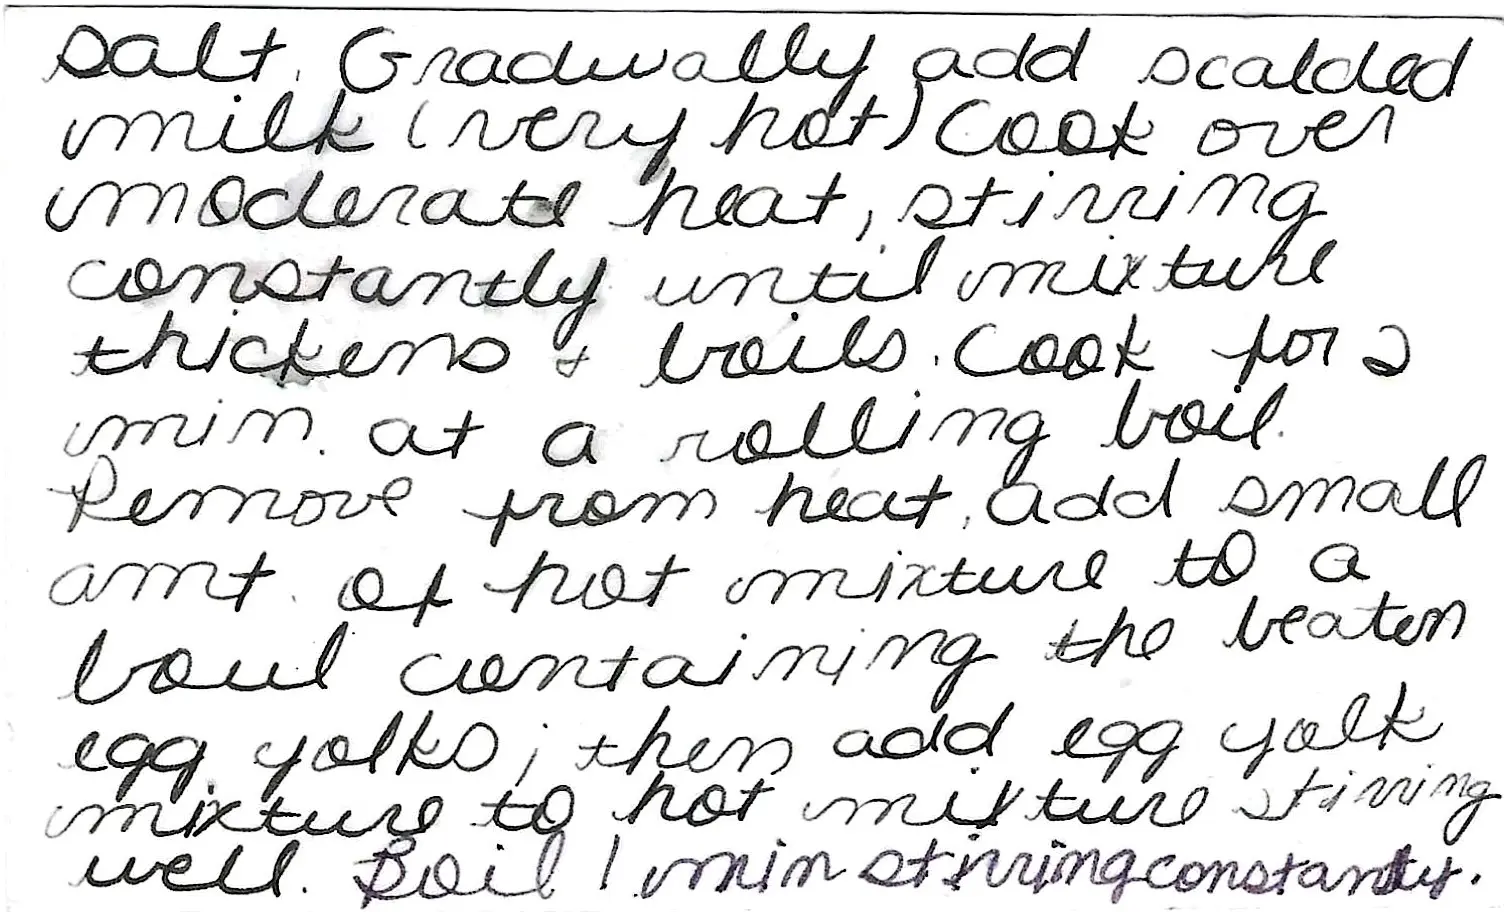 salt. Gradually add scalded
milk (very hot) Cook over
moderate heat, stirring
constantly until mixture
thickens + boils. Cook for 2
min. at a rolling boil.
Remove from heat, add small
amt. of hot mixture to a
bowl containing the beaten
egg yolks; then add egg yolk
mixture to hot mixture stirring
well. Boil 1 min stirring constantly.